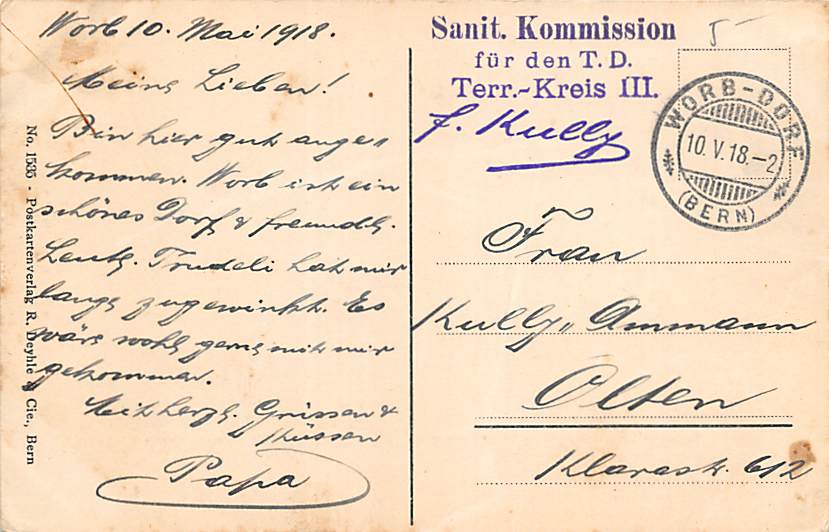 Worb 10. Mai 1918.
Meine Lieben!
Bin hier gut ange=
kommen. Worb ist ein
schönes Dorf & freundl.
Leute. Trudeli hat mir
lange zugewinkt. Es
wäre wohl gerne mit mir
gekommen.
Mit herzl. Grüssen &
Küssen
Papa
No. 1535 - Postkartenverlag R. Deyhle & Cie., Bern
Sanit. Kommission
für den T. D.
Terr.-Kreis III.
f. Kully
WORB-DORF
10. V. 18.-2
(BERN)
Frau
Kully, Ammann
Olten
Klarastr. 612